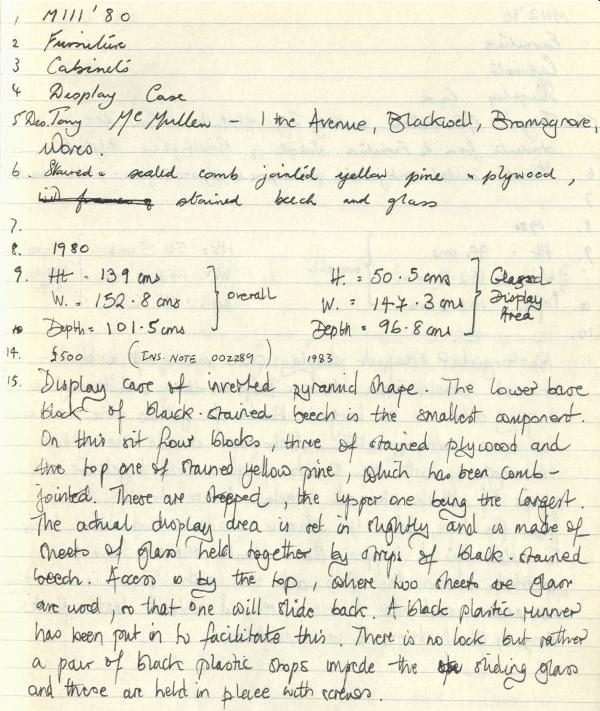 1 M111'80
2 Furniture
3 Cabinets
4 Display Case
5 Des. Tony McMullen - 1 the Avenue, Blackwell, Bromsgrove,
Worcs.
6. Stained & sealed comb jointed yellow pine & plywood,
stained beech and glass
7.
8. 1980
9. Ht = 139 cms H. = 50.5 cms Glazed
W. = 152.8 cms overall W. = 147.3 cms Display
10 Depth = 101.5 cms Depth = 96.8 cms Area
14. £500 (INS. NOTE 002289) 1983
15. Display case of inverted pyramid shape. The lower base
block of black-stained beech is the smallest component.
On this sit four blocks, three of stained plywood and
the top one of stained yellow pine, which has been comb-
jointed. These are stepped, the upper one being the largest.
The actual display area is set in slightly and is made of
sheets of glass held together by strips of black-stained
beech. Access is by the top, where two sheets are glass
are used, so that one will slide back. A black plastic runner
has been put in to facilitate this. There is no lock but rather
a pair of black plastic stops impede the sliding glass
and these are held in place with screws.